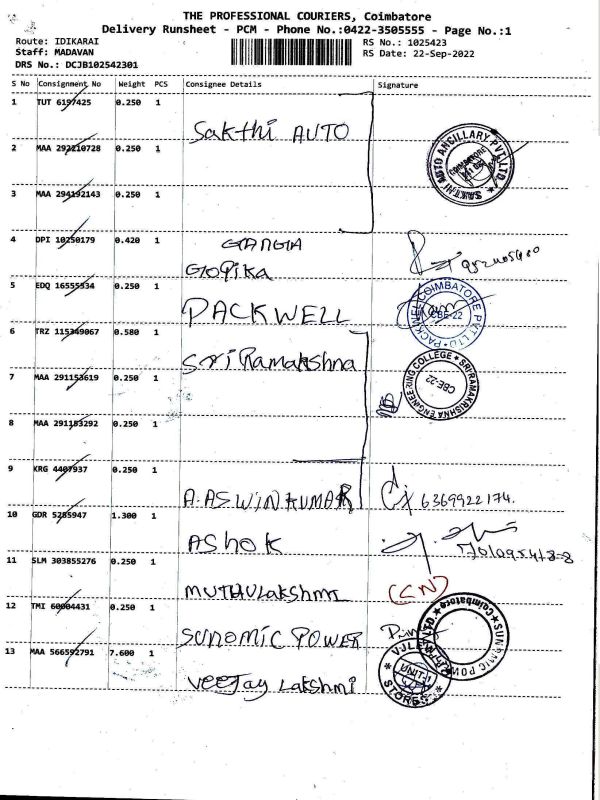 THE PROFESSIONAL COURIERS, Coimbatore
Delivery Runsheet - PCM - Phone No.:0422-3505555 - Page No.:1
Route: IDIKARAI RS No.: 1025423
Staff: MADAVAN RS Date: 22-Sep-2022
DRS No.: DCJB102542301
S No Consignment No Weight PCS Consignee Details Signature
1 TUT 6197425 0.250 1
Sakthi AUTO
2 MAA 292210728 0.250 1
SAKTHI AUTO ANCILLARY PVT LTD
COIMBATORE
3 MAA 294192143 0.250 1
4 DPI 10250179 0.420 1
GANGA
GOPIKA
5 EDQ 16555534 0.250 1
PACKWELL
PACKWEL COIMBATORE PVT LTD
CBE-22
6 TRZ 115349067 0.580 1
Sri Ramakshna
7 MAA 291153619 0.250 1
SRI RAMAKRISHNA ENGINEERING COLLEGE
CBE-22
8 MAA 291153292 0.250 1
9 KRG 4407937 0.250 1
A.ASWINKUMAR 6369922174.
10 GDR 5285947 1.300 1
ASHOK
11 SLM 303855276 0.250 1
MUTHULakshmi (CN)
12 TMI 60004431 0.250 1
SUNOMIC POWER
Coimbatore
13 MAA 566592791 7.600 1
VeeJay Lakshmi
UNIT-1
STORES